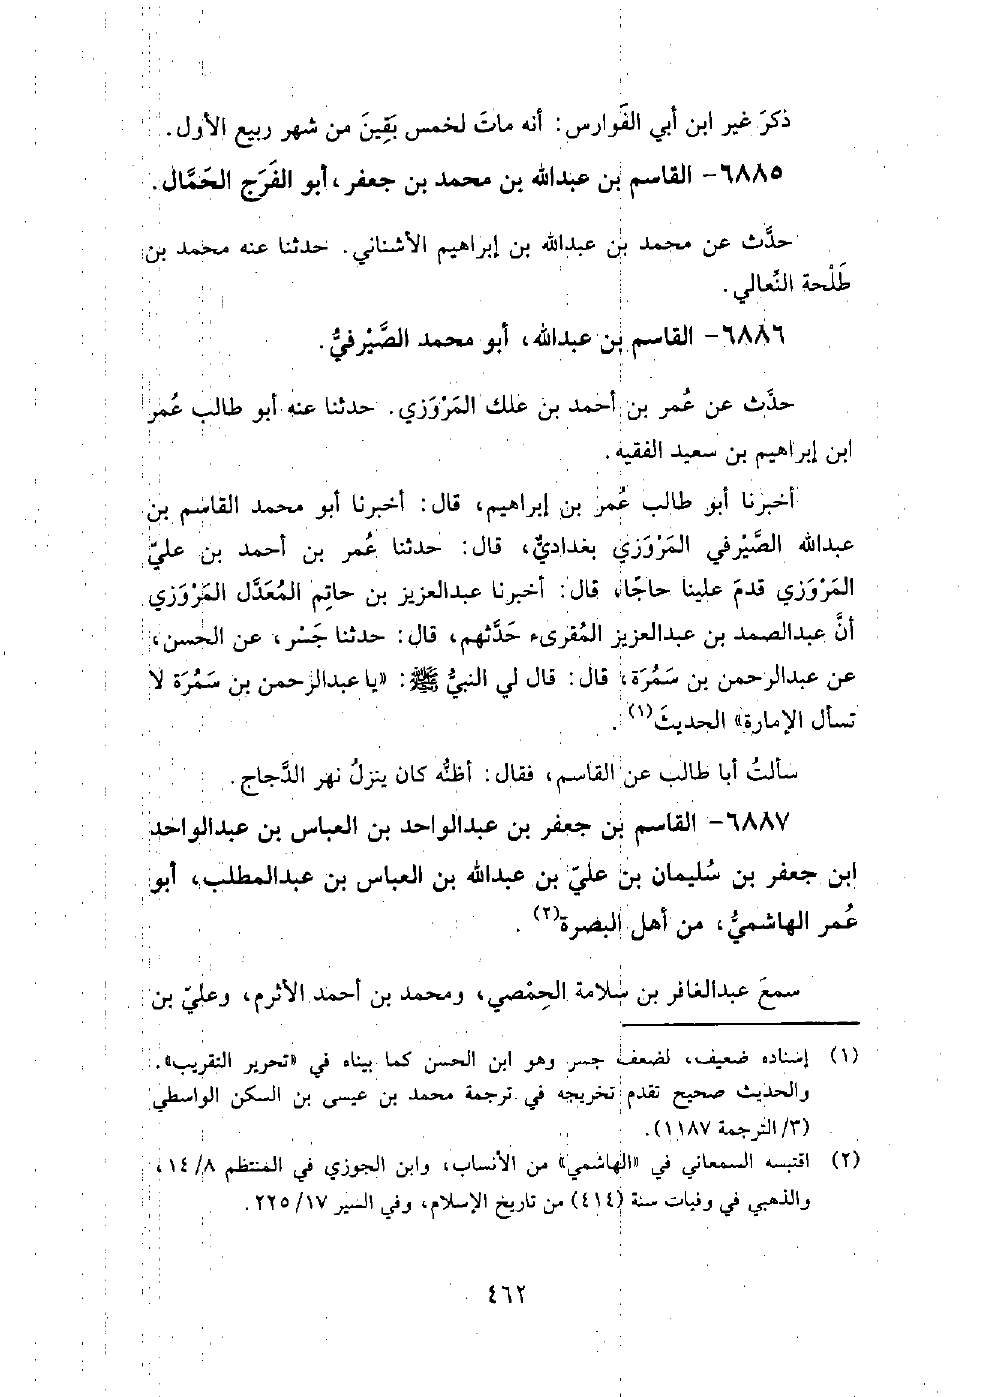 ذكرَ غير ابن أبي الفَوارس: أنه ماتَ لخمس بَقِينَ من شهر ربيع الأول.
٦٨٨٥- القاسم بن عبدالله بن محمد بن جعفر، أبو الفَرَج الحَمَّال.
حدَّث عن محمد بن عبدالله بن إبراهيم الأشناني. حدثنا عنه محمد بن
طَلْحة النِّعالي.
٦٨٨٦- القاسم بن عبدالله، أبو محمد الصَّيْرفيُّ.
حدَّث عن عُمر بن أحمد بن علك المَرْوَزي. حدثنا عنه أبو طالب عُمر
ابن إبراهيم بن سعيد الفقيه.
أخبرنا أبو طالب عُمر بن إبراهيم، قال: أخبرنا أبو محمد القاسم بن
عبدالله الصَّيْرفي المَرْوَزي بغداديٌّ، قال: حدثنا عُمر بن أحمد بن عليّ
المَرْوَزي قدمَ علينا حاجًا، قال: أخبرنا عبدالعزيز بن حاتِم المُعَدَّل المَرْوَزي
أنَّ عبدالصمد بن عبدالعزيز المُقرىء حَدَّثهم، قال: حدثنا جَسْر، عن الحسن،
عن عبدالرحمن بن سَمُرَة، قال: قال لي النبيُّ ﷺ: «يا عبدالرحمن بن سَمُرَة لا
تسأل الإمارة» الحديثَ(١).
سألتُ أبا طالب عن القاسم، فقال: أظنُّه كان ينزلُ نهر الدَّجاج.
٦٨٨٧- القاسم بن جعفر بن عبدالواحد بن العباس بن عبدالواحد
ابن جعفر بن سُليمان بن عليّ بن عبدالله بن العباس بن عبدالمطلب، أبو
عُمر الهاشميُّ، من أهل البصرة(٢).
سمعَ عبدالغافر بن سلامة الحِمْصي، ومحمد بن أحمد الأثرم، وعليّ بن
(١) إسناده ضعيف، لضعف جسر وهو ابن الحسن كما بيناه في «تحرير التقريب».
والحديث صحيح تقدم تخريجه في ترجمة محمد بن عيسى بن السكن الواسطي
(٣/ الترجمة ١١٨٧).
(٢) اقتبسه السمعاني في «الهاشمي» من الأنساب، وابن الجوزي في المنتظم ٨/ ١٤،
والذهبي في وفيات سنة (٤١٤) من تاريخ الإسلام، وفي السير ١٧/ ٢٢٥.
٤٦٢